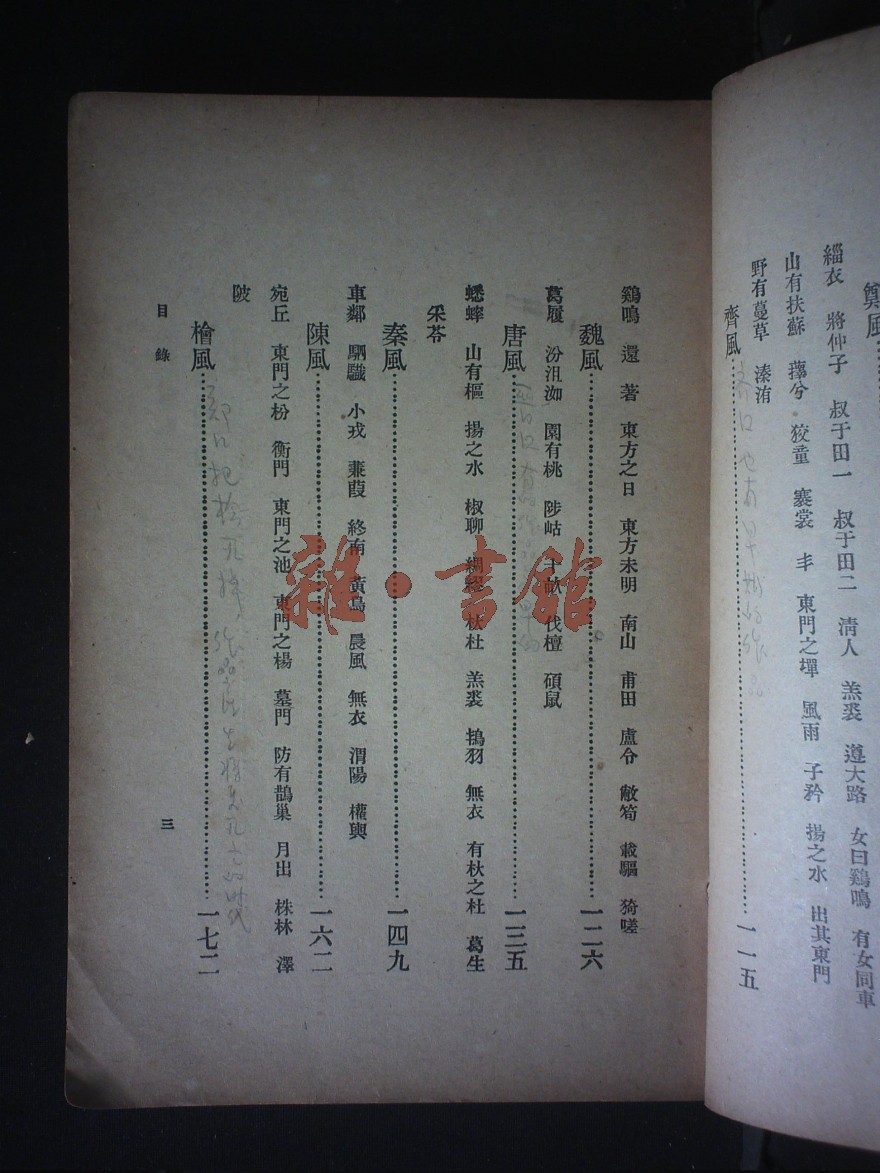 鄭風
緇衣　將仲子　叔于田一　叔于田二　淸人　羔裘　遵大路　女曰鷄鳴　有女同車
山有扶蘇　蘀兮　狡童　褰裳　丰　東門之墠　風雨　子衿　揚之水　出其東門
野有蔓草　溱洧
齊風……一一五
鷄鳴　還　著　東方之日　東方未明　南山　甫田　盧令　敝笱　載驅　猗嗟
魏風……一二六
葛屨　汾沮洳　園有桃　陟岵　十畝　伐檀　碩鼠
唐風……一三五
蟋蟀　山有樞　揚之水　椒聊　綢繆　杕杜　羔裘　鴇羽　無衣　有杕之杜　葛生
采苓
秦風……一四九
車鄰　駟驖　小戎　蒹葭　終南　黃鳥　晨風　無衣　渭陽　權輿
陳風……一六二
宛丘　東門之枌　衡門　東門之池　東門之楊　墓門　防有鵲巢　月出　株林　澤
陂
檜風……一七二
目錄
三
雜·書館